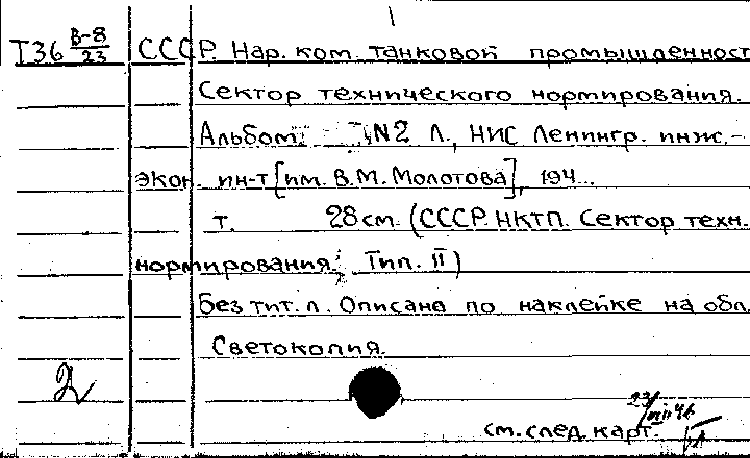 Т36 В-8/23 СССР. Нар. ком. танковой промышленност
Сектор технического нормирования.
Альбом №2 Л., НИС Ленингр. инж.-
экон. ин-т [им. В.М. Молотова], 194...
т. 28 см. (СССР. НКТП. Сектор техн.
нормирования; Тип. II)
Без тит. л. Описано по наклейке на обл.
Светокопия.
2
23/VIII 46
см. след. карт.